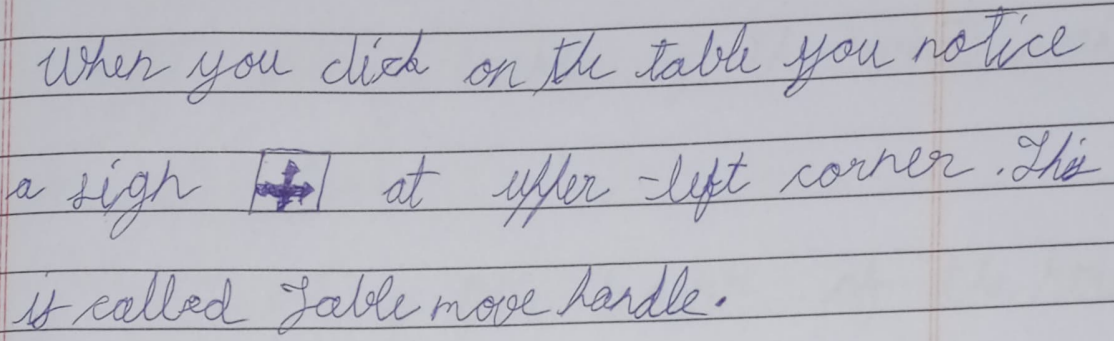 When you click on the table you notice
a sign at upper-left corner. This
is called Table move handle.